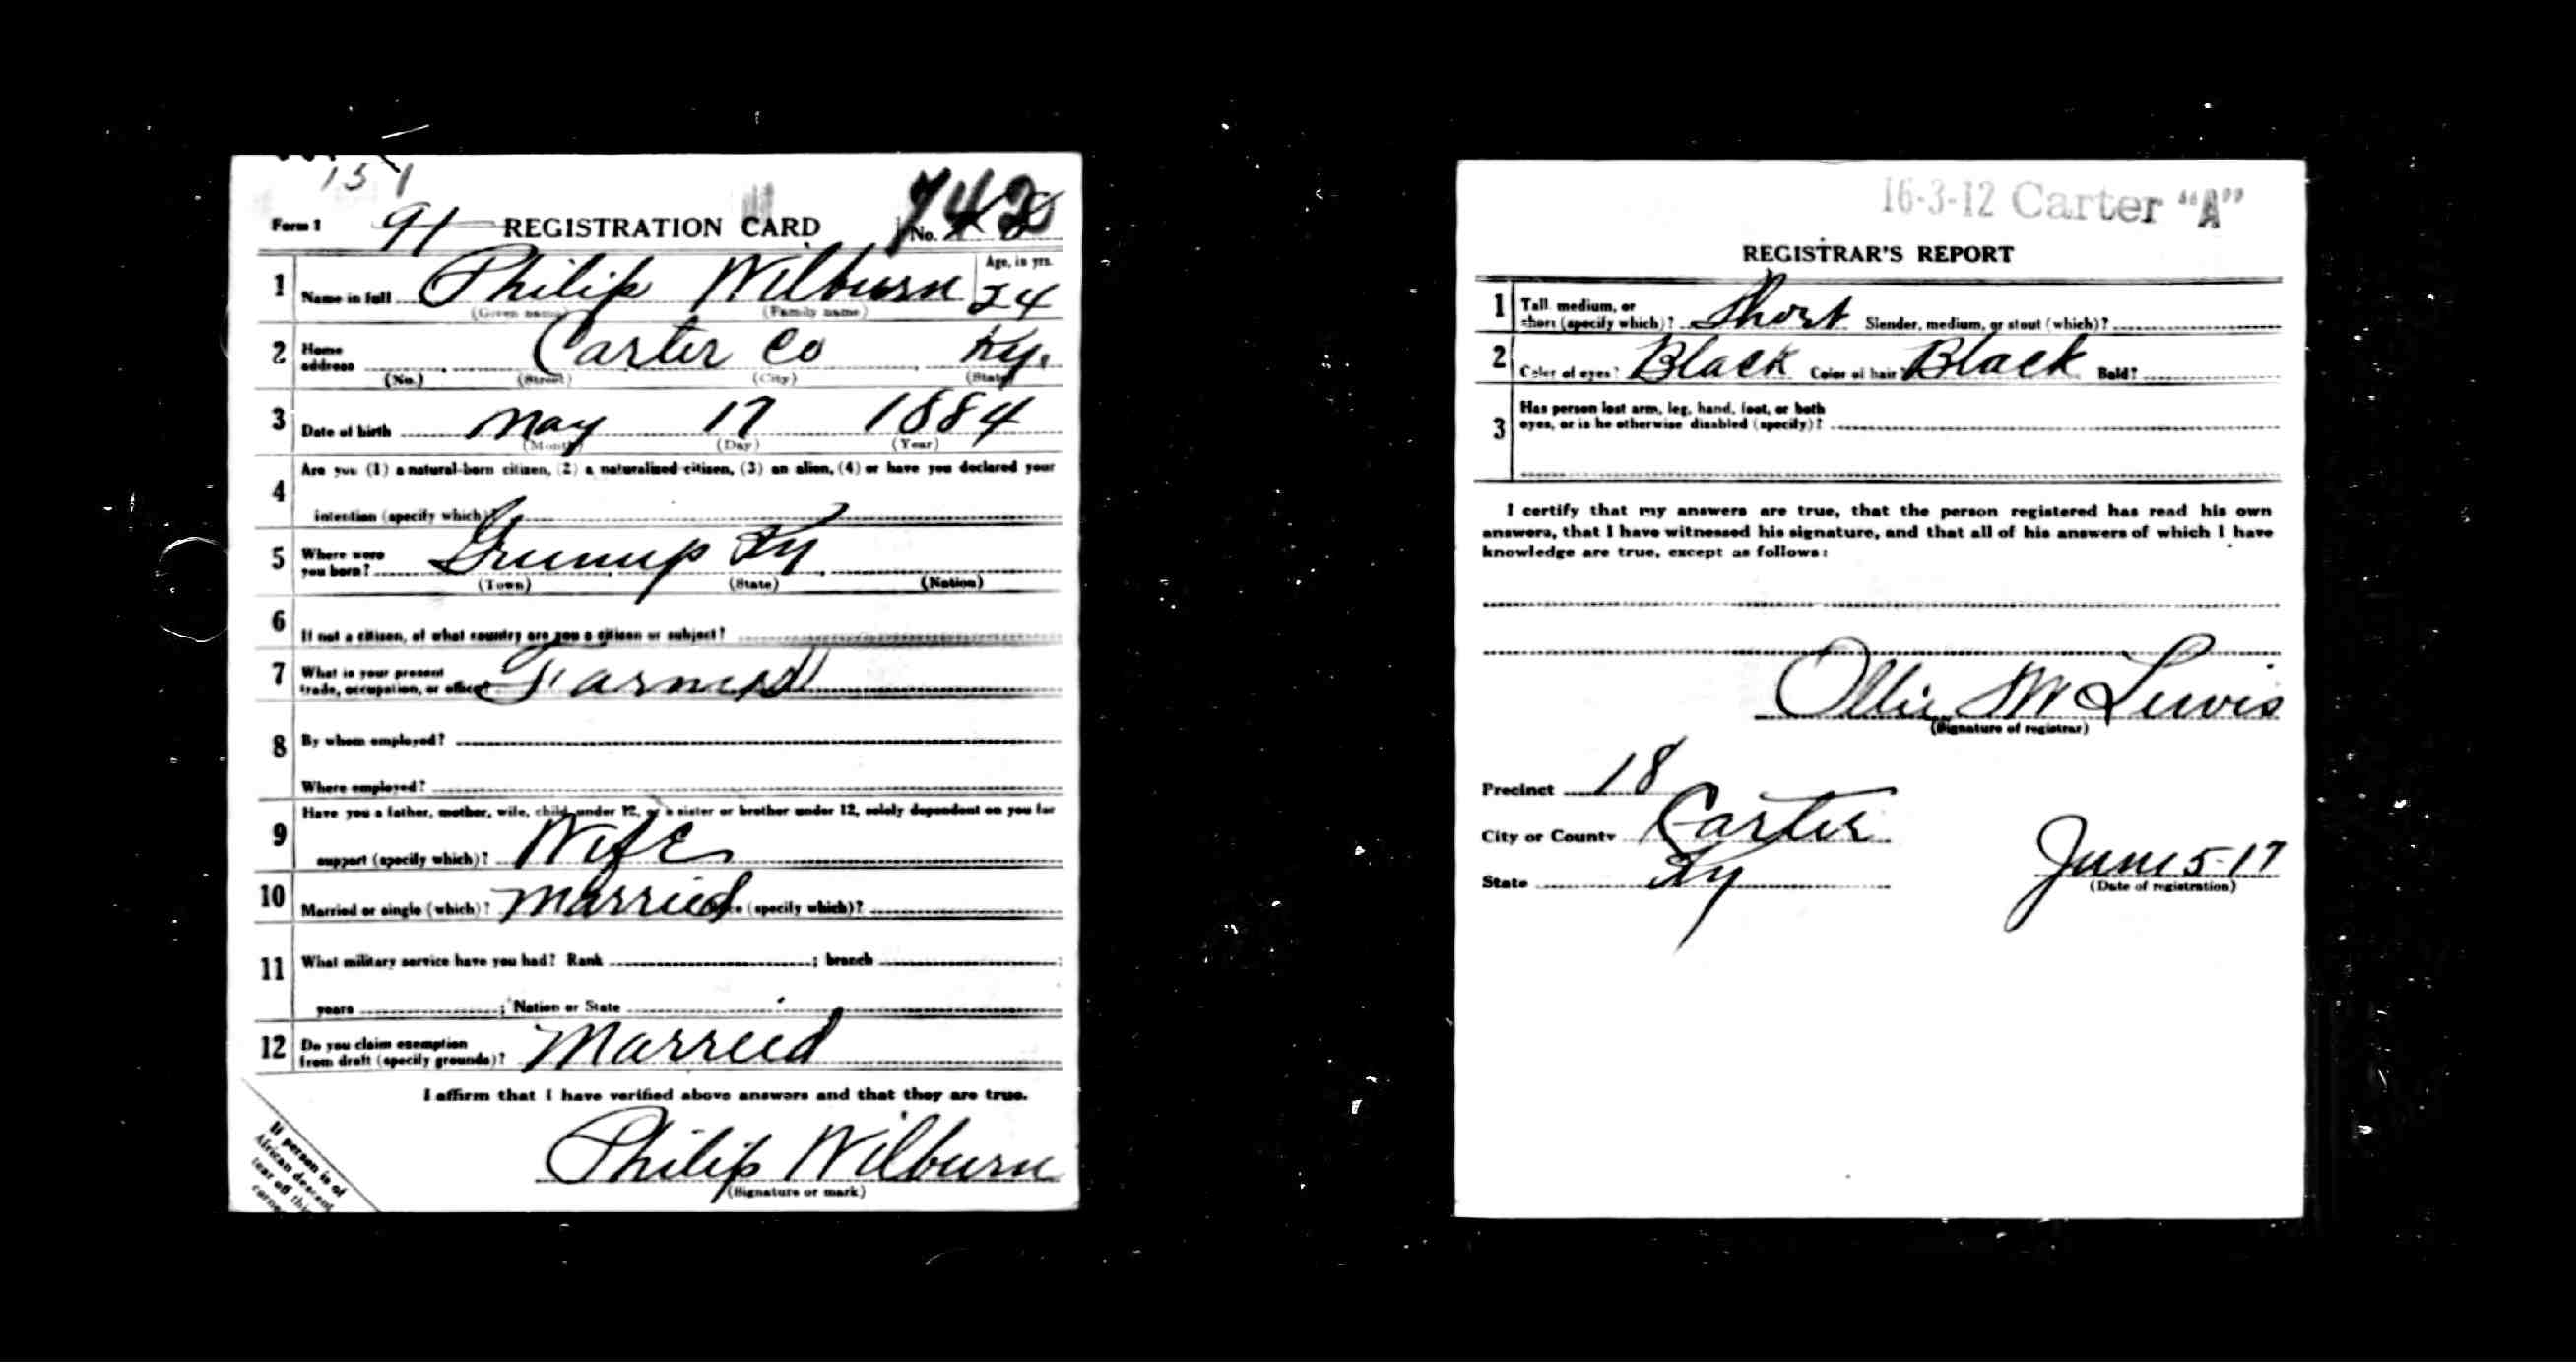 151
Form 1 91 REGISTRATION CARD No. 742
1 Name in full Philip Wilburn Age, in yrs. 24
(Given name) (Family name)
2 Home address Carter Co Ky.
(No.) (Street) (City) (State)
3 Date of birth May 17 1884
(Month) (Day) (Year)
4 Are you (1) a natural-born citizen, (2) a naturalized citizen, (3) an alien, (4) or have you declared your
intention (specify which)?
5 Where were you born? Greenup Ky
(Town) (State) (Nation)
6 If not a citizen, of what country are you a citizen or subject?
7 What is your present trade, occupation, or office? Farmer
8 By whom employed?
Where employed?
9 Have you a father, mother, wife, child under 12, or a sister or brother under 12, solely dependent on you for
support (specify which)? Wife
10 Married or single (which)? Married (specify which)?
11 What military service have you had? Rank ; branch ;
years ; Nation or State
12 Do you claim exemption from draft (specify grounds)? Married
I affirm that I have verified above answers and that they are true.
Philip Wilburn
(Signature or mark)
If person is of
African descent
tear off this
corner
16-3-12 Carter "A"
REGISTRAR'S REPORT
1 Tall, medium, or short (specify which)? Short Slender, medium, or stout (which)?
2 Color of eyes? Black Color of hair? Black Bald?
3 Has person lost arm, leg, hand, foot, or both
eyes, or is he otherwise disabled (specify)?
I certify that my answers are true, that the person registered has read his own
answers, that I have witnessed his signature, and that all of his answers of which I have
knowledge are true, except as follows:
Ollie M Lewis
(Signature of registrar)
Precinct 18
City or County Carter
State Ky
June 5-17
(Date of registration)